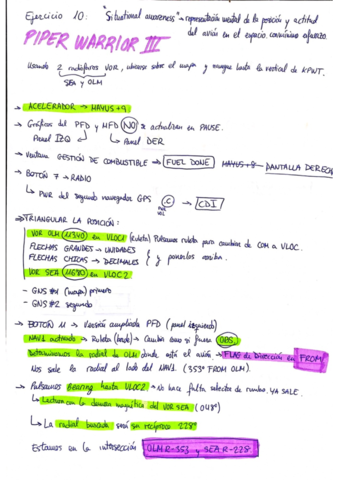 Ejercicio 10: "Situational awareness" → representación mental de la posición y actitud
del avión en el espacio, conmínimo esfuerzo.
PIPER WARRIOR III
Usando 2 radiofaros VOR, ubicarse sobre el mapa y navegar hasta la vertical de KPWT.
SEA y OLM
→ ACELERADOR → MAYUS + 9
→ Gráficos del PFD y MFD NO se actualizan en PAUSE.
Panel IZQ Panel DER
→ Ventana GESTIÓN DE COMBUSTIBLE → FUEL DONE MAYUS+8 → PANTALLA DERECH
→ BOTÓN 7 → RADIO
↳ PWR del segundo navegador GPS C → CDI
PWR VOL
⇒ TRIANGULAR LA POSICIÓN:
VOR OLM 11340 en VLOC1 (ruleta) Pulsamos ruleta para cambiar de COM a VLOC.
FLECHAS GRANDES → UNIDADES
FLECHAS CHICAS → DECIMALES } y ponerlos arriba.
VOR SEA 11680 en VLOC2
- GNS #1 (mapa) primero
- GNS #2 segundo
→ BOTÓN 11 → Versión ampliada PFD (panel izquierdo)
NAV1 activado → Ruleta (borde) → Cambia como si fuera OBS.
Determinamos la radial de OLM donde está el avión → FLAG de Dirección en FROM
Nos sale la radial al lado del NAV1. (353º FROM OLM).
→ Pulsamos Bearing hasta VLOC2 → No hace falta selector de rumbo. YA SALE.
↳ Lectura con la demora magnética del VOR SEA (048º)
↳ La radial buscada será su recíproco 228º
Estamos en la intersección OLM R-353 y SEA R-228